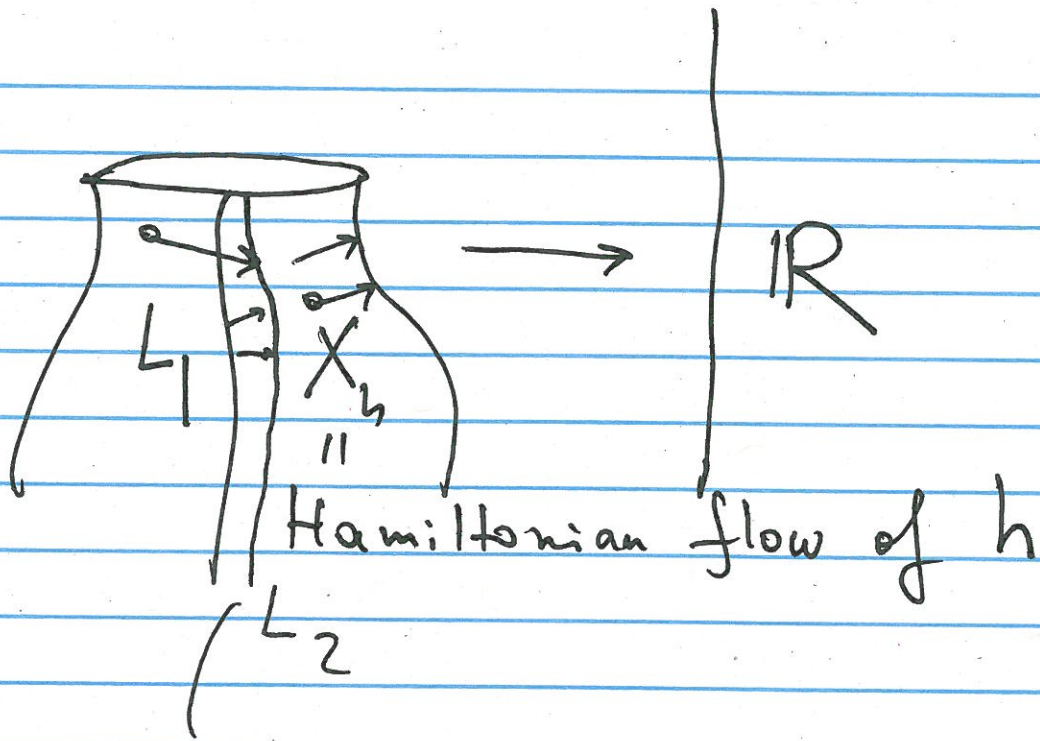 ℝ
L₁
X_h
=
Hamiltonian flow of h
L₂